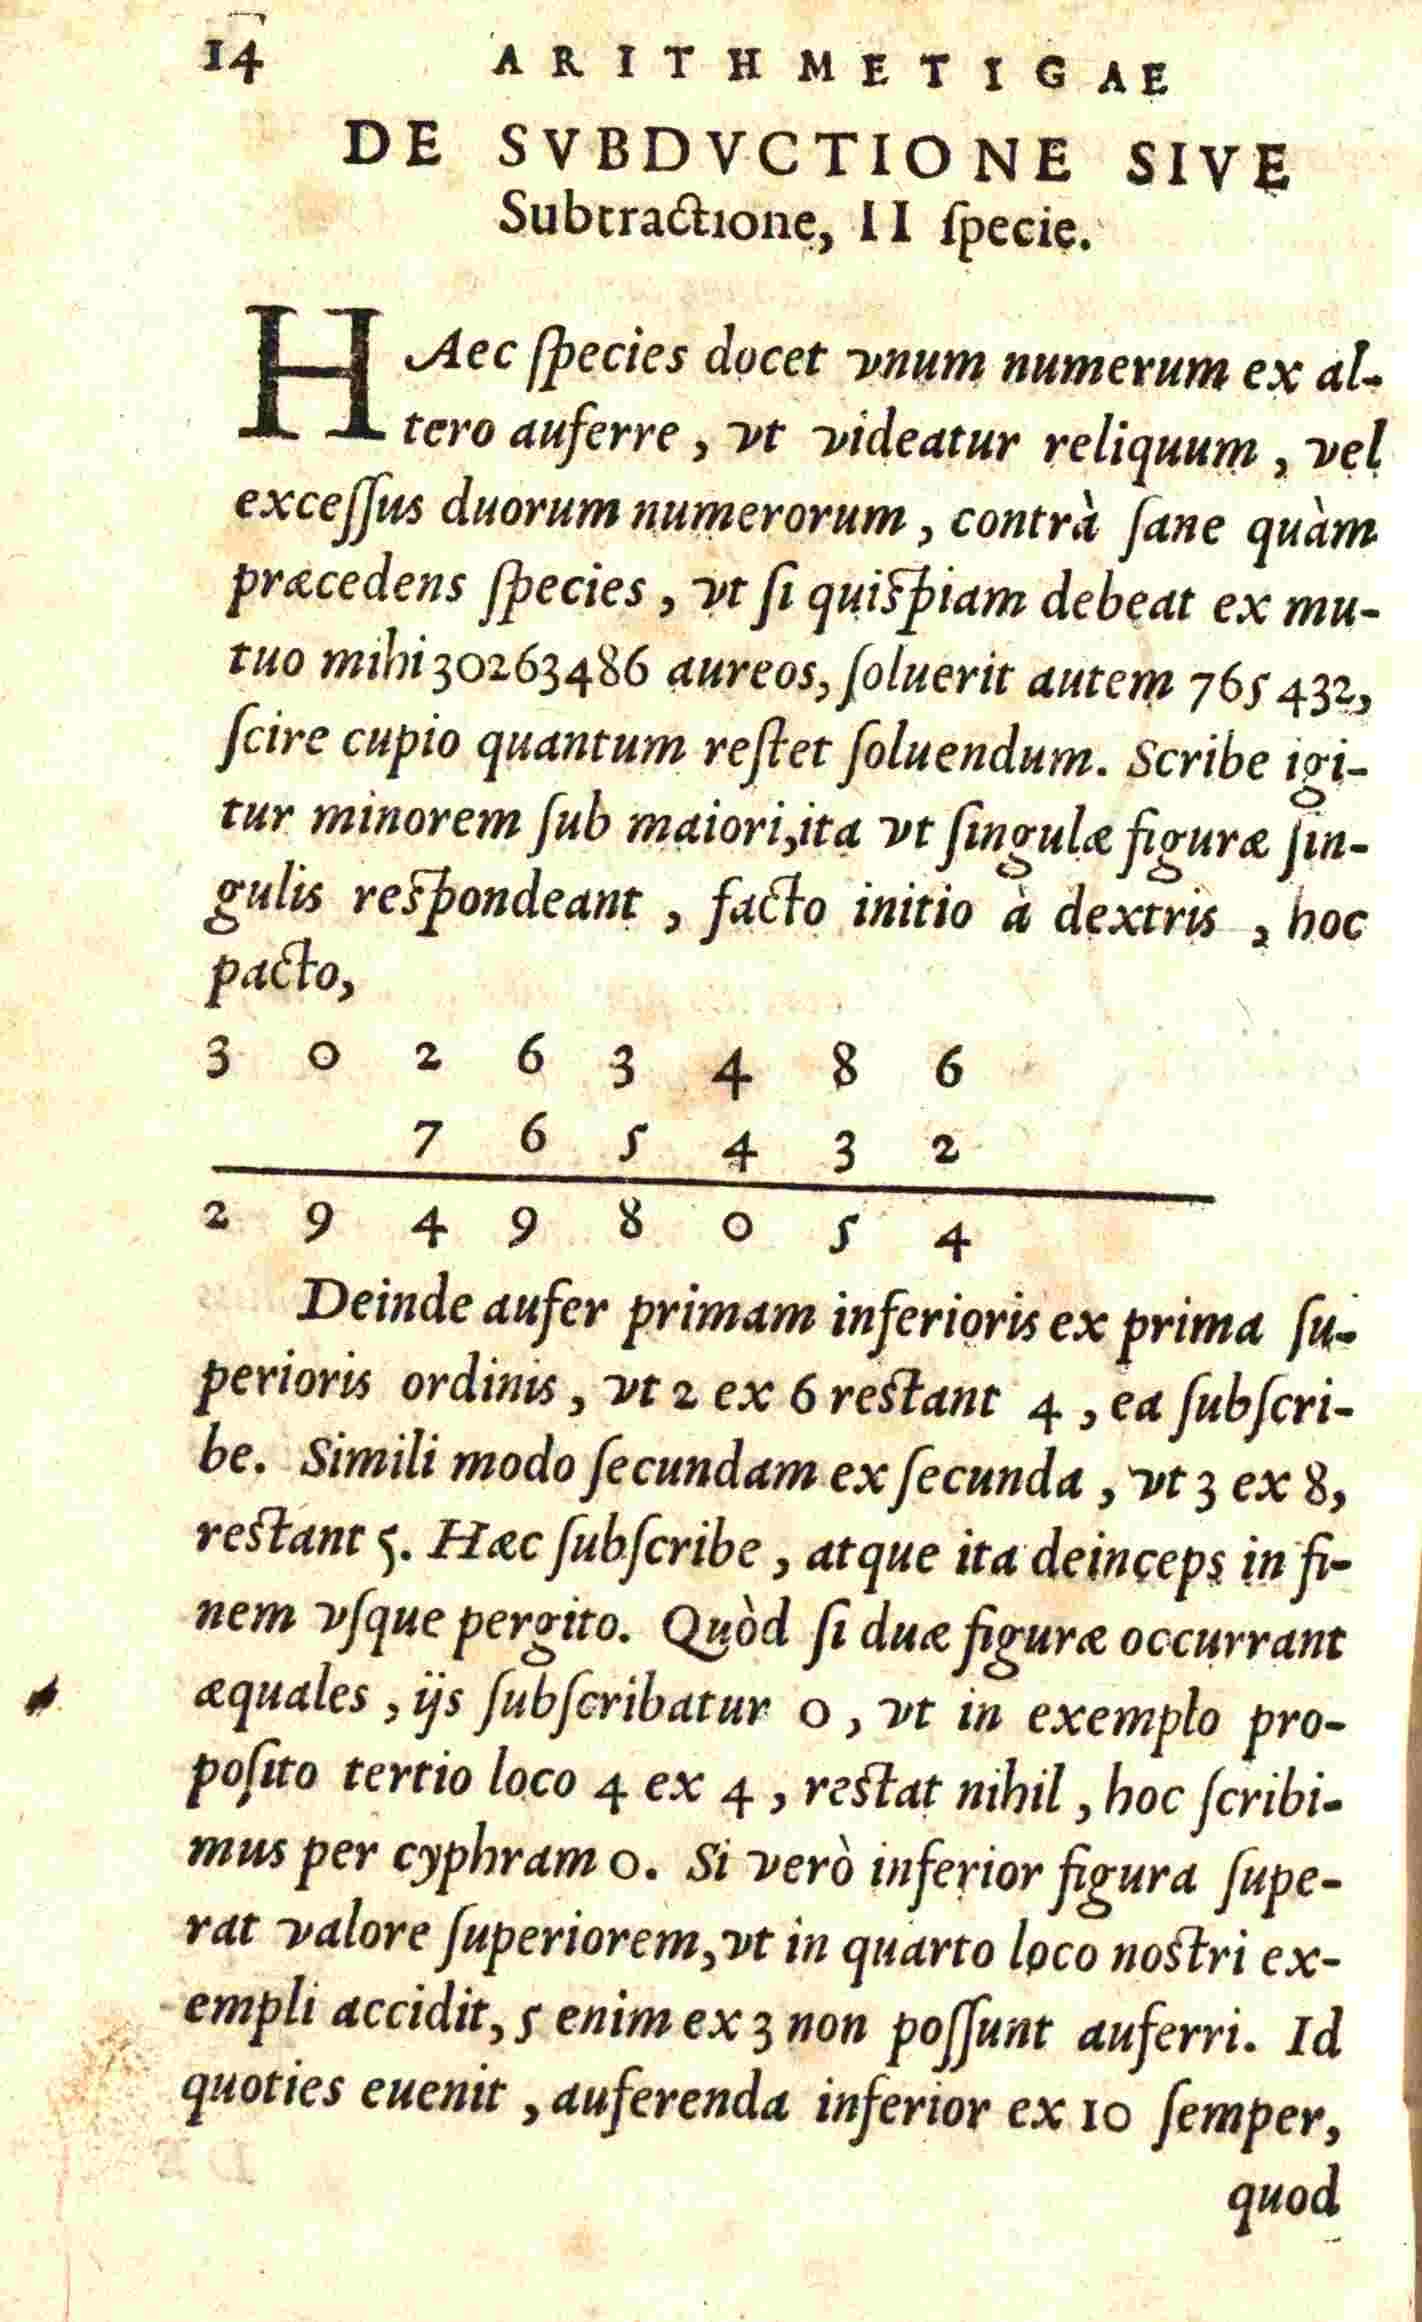 14 ARITHMETIGAE
DE SVBDVCTIONE SIVE
Subtractione, II ſpecie.
HAec ſpecies docet vnum numerum ex al-
tero auferre, vt videatur reliquum, vel
exceſſus duorum numerorum, contrà ſane quàm
præcedens ſpecies, vt ſi quiſpiam debeat ex mu-
tuo mihi 30263486 aureos, ſoluerit autem 765432,
ſcire cupio quantum reſtet ſoluendum. Scribe igi-
tur minorem ſub maiori, ita vt ſingulæ figuræ ſin-
gulis reſpondeant, facto initio à dextris, hoc
pacto,
3 0 2 6 3 4 8 6
7 6 5 4 3 2
2 9 4 9 8 0 5 4
Deinde aufer primam inferioris ex prima ſu-
perioris ordinis, vt 2 ex 6 reſtant 4, ea ſubſcri-
be. Simili modo ſecundam ex ſecunda, vt 3 ex 8,
reſtant 5. Hæc ſubſcribe, atque ita deinceps in fi-
nem vſque pergito. Quòd ſi duæ figuræ occurrant
æquales, ijs ſubſcribatur 0, vt in exemplo pro-
poſito tertio loco 4 ex 4, reſtat nihil, hoc ſcribi-
mus per cyphram 0. Si verò inferior figura ſupe-
rat valore ſuperiorem, vt in quarto loco noſtri ex-
empli accidit, 5 enim ex 3 non poſſunt auferri. Id
quoties euenit, auferenda inferior ex 10 ſemper,
quod